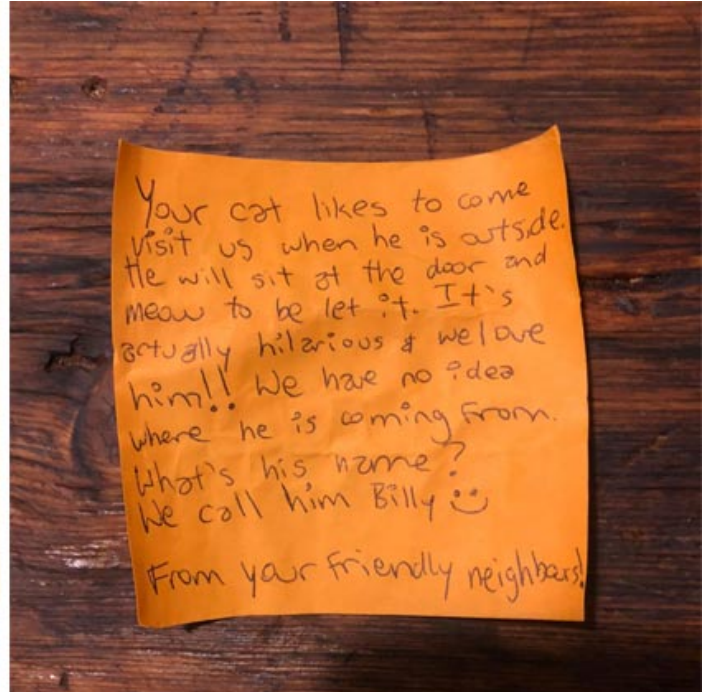 Your cat likes to come
visit us when he is outside.
He will sit at the door and
meow to be let it. It's
actually hilarious & we love
him!! We have no idea
where he is coming from.
What's his name?
We call him Billy :)
From your friendly neighbours!